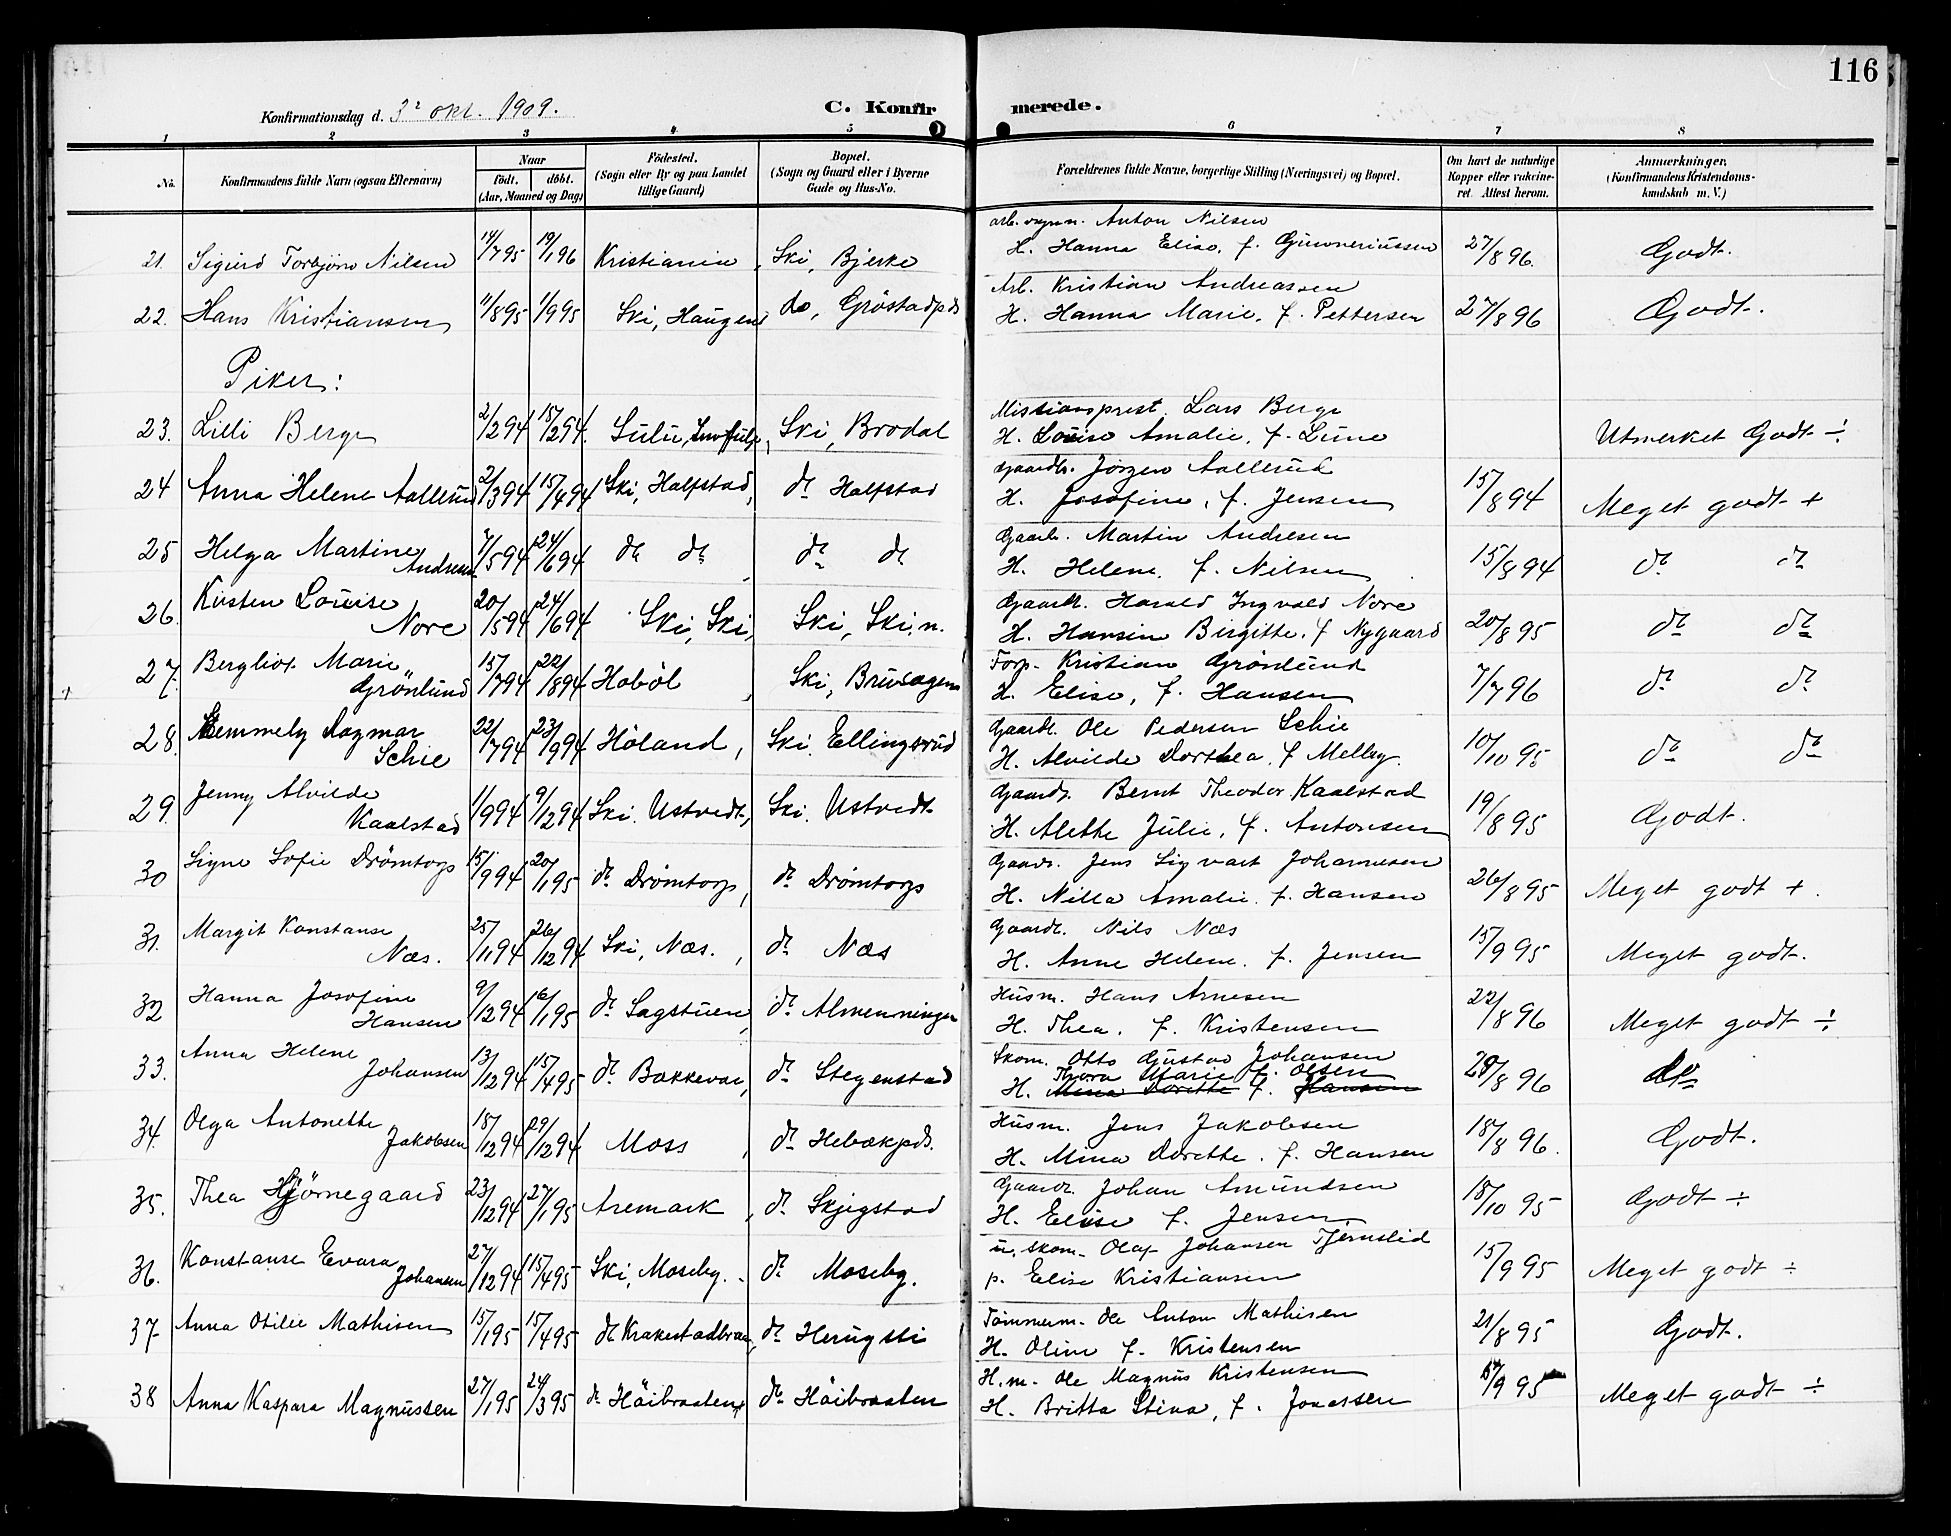 116
Konfirmationsdag d. 3' okt. 1909.
C. Konfirmerede.
1 2 3 4 5 6 7 8
No. Konfirmandens fulde Navn (ogsaa Efternavn) Naar født. døbt. (Aar, Maaned og Dag) Födested. (Sogn eller By og paa Landet tillige Gaard) Bopæl. (Sogn og Gaard eller i Byerne Gade og Hus-No. Forældrenes fulde Navne, borgerlige Stilling (Næringsvei) og Bopæl. Om havt de naturlige Kopper eller vakcineret. Attest herom. Anmærkninger. (Konfirmandens Kristendomskundskab m. V.)
arb. Anton Nilsen
21. Sigurd Torbjörn Nilsen 14/7 95 19/1 96 Kristiania, Ski, Bjerke H. Hanna Elise, f. Gunneriussen 27/8 96. Godt.
Arb. Kristian Andreassen
22. Hans Kristiansen 11/8 95 1/9 95 Ski, Haugen do, Gröstadpds H. Hanna Marie, f. Pettersen 27/8 96 Godt.
Piker:
Missionsprest. Lars Berge
23. Lilli Berge 2/2 94 15/2 94. Sulu, Ski, Brodal H. Louise Amalie, f. Lune Utmerket Godt ÷
Gaardb. Jörgen Aallerud
24 Anna Helene Aallerud 2/3 94 15/4 94 Ski, Halfstad, do Halfstad H. Josefine, f. Jensen 15/8 94 Meget godt +
Gaarb. Martin Andresen
25 Helga Martine Andresen 7/5 94 24/6 94 do do, do do H. Helene, f. Nilsen 15/8 94 do do
Gaardb. Harald Ingvald Nore
26. Kirsten Louise Nore 20/5 94 24/6 94 Ski, Ski, Ski, Ski, n. H. Hansine Birgitte, f Nygaard 20/8 95 do do
Forp. Kristian Grönlund
27. Bergliot Marie Grönlund 15/7 94 22/8 94 Haböl, Ski, Brusagen H. Elise, f. Hansen 7/7 96 do do
Gaardb. Ole Pedersen Schie
28. Hemmely Dagmar Schie 22/7 94 23/9 94 Höland, Ski, Ellingsrud H. Alvilde Dorthea, f Melby. 10/10 95 do do
Gaardb. Bernt Theodor Kaalstad
29. Jenny Alvilde Kaalstad 1/9 94 9/12 94 Ski. Ustvedt, Ski. Ustvedt H. Alette Julie, f. Antonsen 19/8 95 Godt.
Gaardb. Jens Sigvart Johannesen
30 Signe Sofie Drömtorp 15/9 94 20/1 95 do Drömtorp, do Drömtorp H. Nilla Amalie f. Hansen 26/8 95 Meget godt +.
Gaardb. Nils Næs
31. Margit Konstanse Næs. 25/11 94 26/12 94 Ski, Næs., do Næs H. Anne Helene. f. Jensen 15/9 95 Meget godt.
Husm. Hans Arnesen
32 Hanna Josefine Hansen 9/12 94 6/1 95 do Sagstuen, do Almenningen H. Thea. f. Kristensen 22/8 96 Meget godt ÷
Skom. Otto Gustav Johansen
Thora Marie f. Olsen
33. Anna Helene Johansen 13/12 94 15/4 95 do Bakkevar, do Stegenstad H. Mina Dorette f. Hansen 29/8 96 do
Husm. Jens Jakobsen
34. Olga Antonette Jakobsen 18/12 94 29/12 94 Moss, do Hebækpds. H. Mina Dorette. f. Hansen 18/8 96. Godt.
Gaardb. Johan Amundsen
35. Thea Hjörnegaard 23/12 94 27/1 95 Aremark, do Skjegstad H. Elise f. Jensen 18/10 95 Godt ÷
u. skom. Olaf Johansen Tjernslid
36. Konstanse Evara Johansen 27/12 94 15/4 95 Ski, Moseby. do Moseby. p. Elise Kristiansen 15/9 95 Meget godt ÷
Tömmerm. Ole Anton Mathisen
37 Anna Otilie Mathisen 15/1 95 15/4 95 do Krakestadbraa, do Herugsti H. Oline f. Kristensen 21/8 95 Godt.
H.m. Ole Magnus Kristensen
38 Anna Kaspara Magnussen 27/1 95 24/3 95 do Höibraaten do Höibraaten H. Britta Stina, f. Jonassen 17/9 95 Meget godt ÷